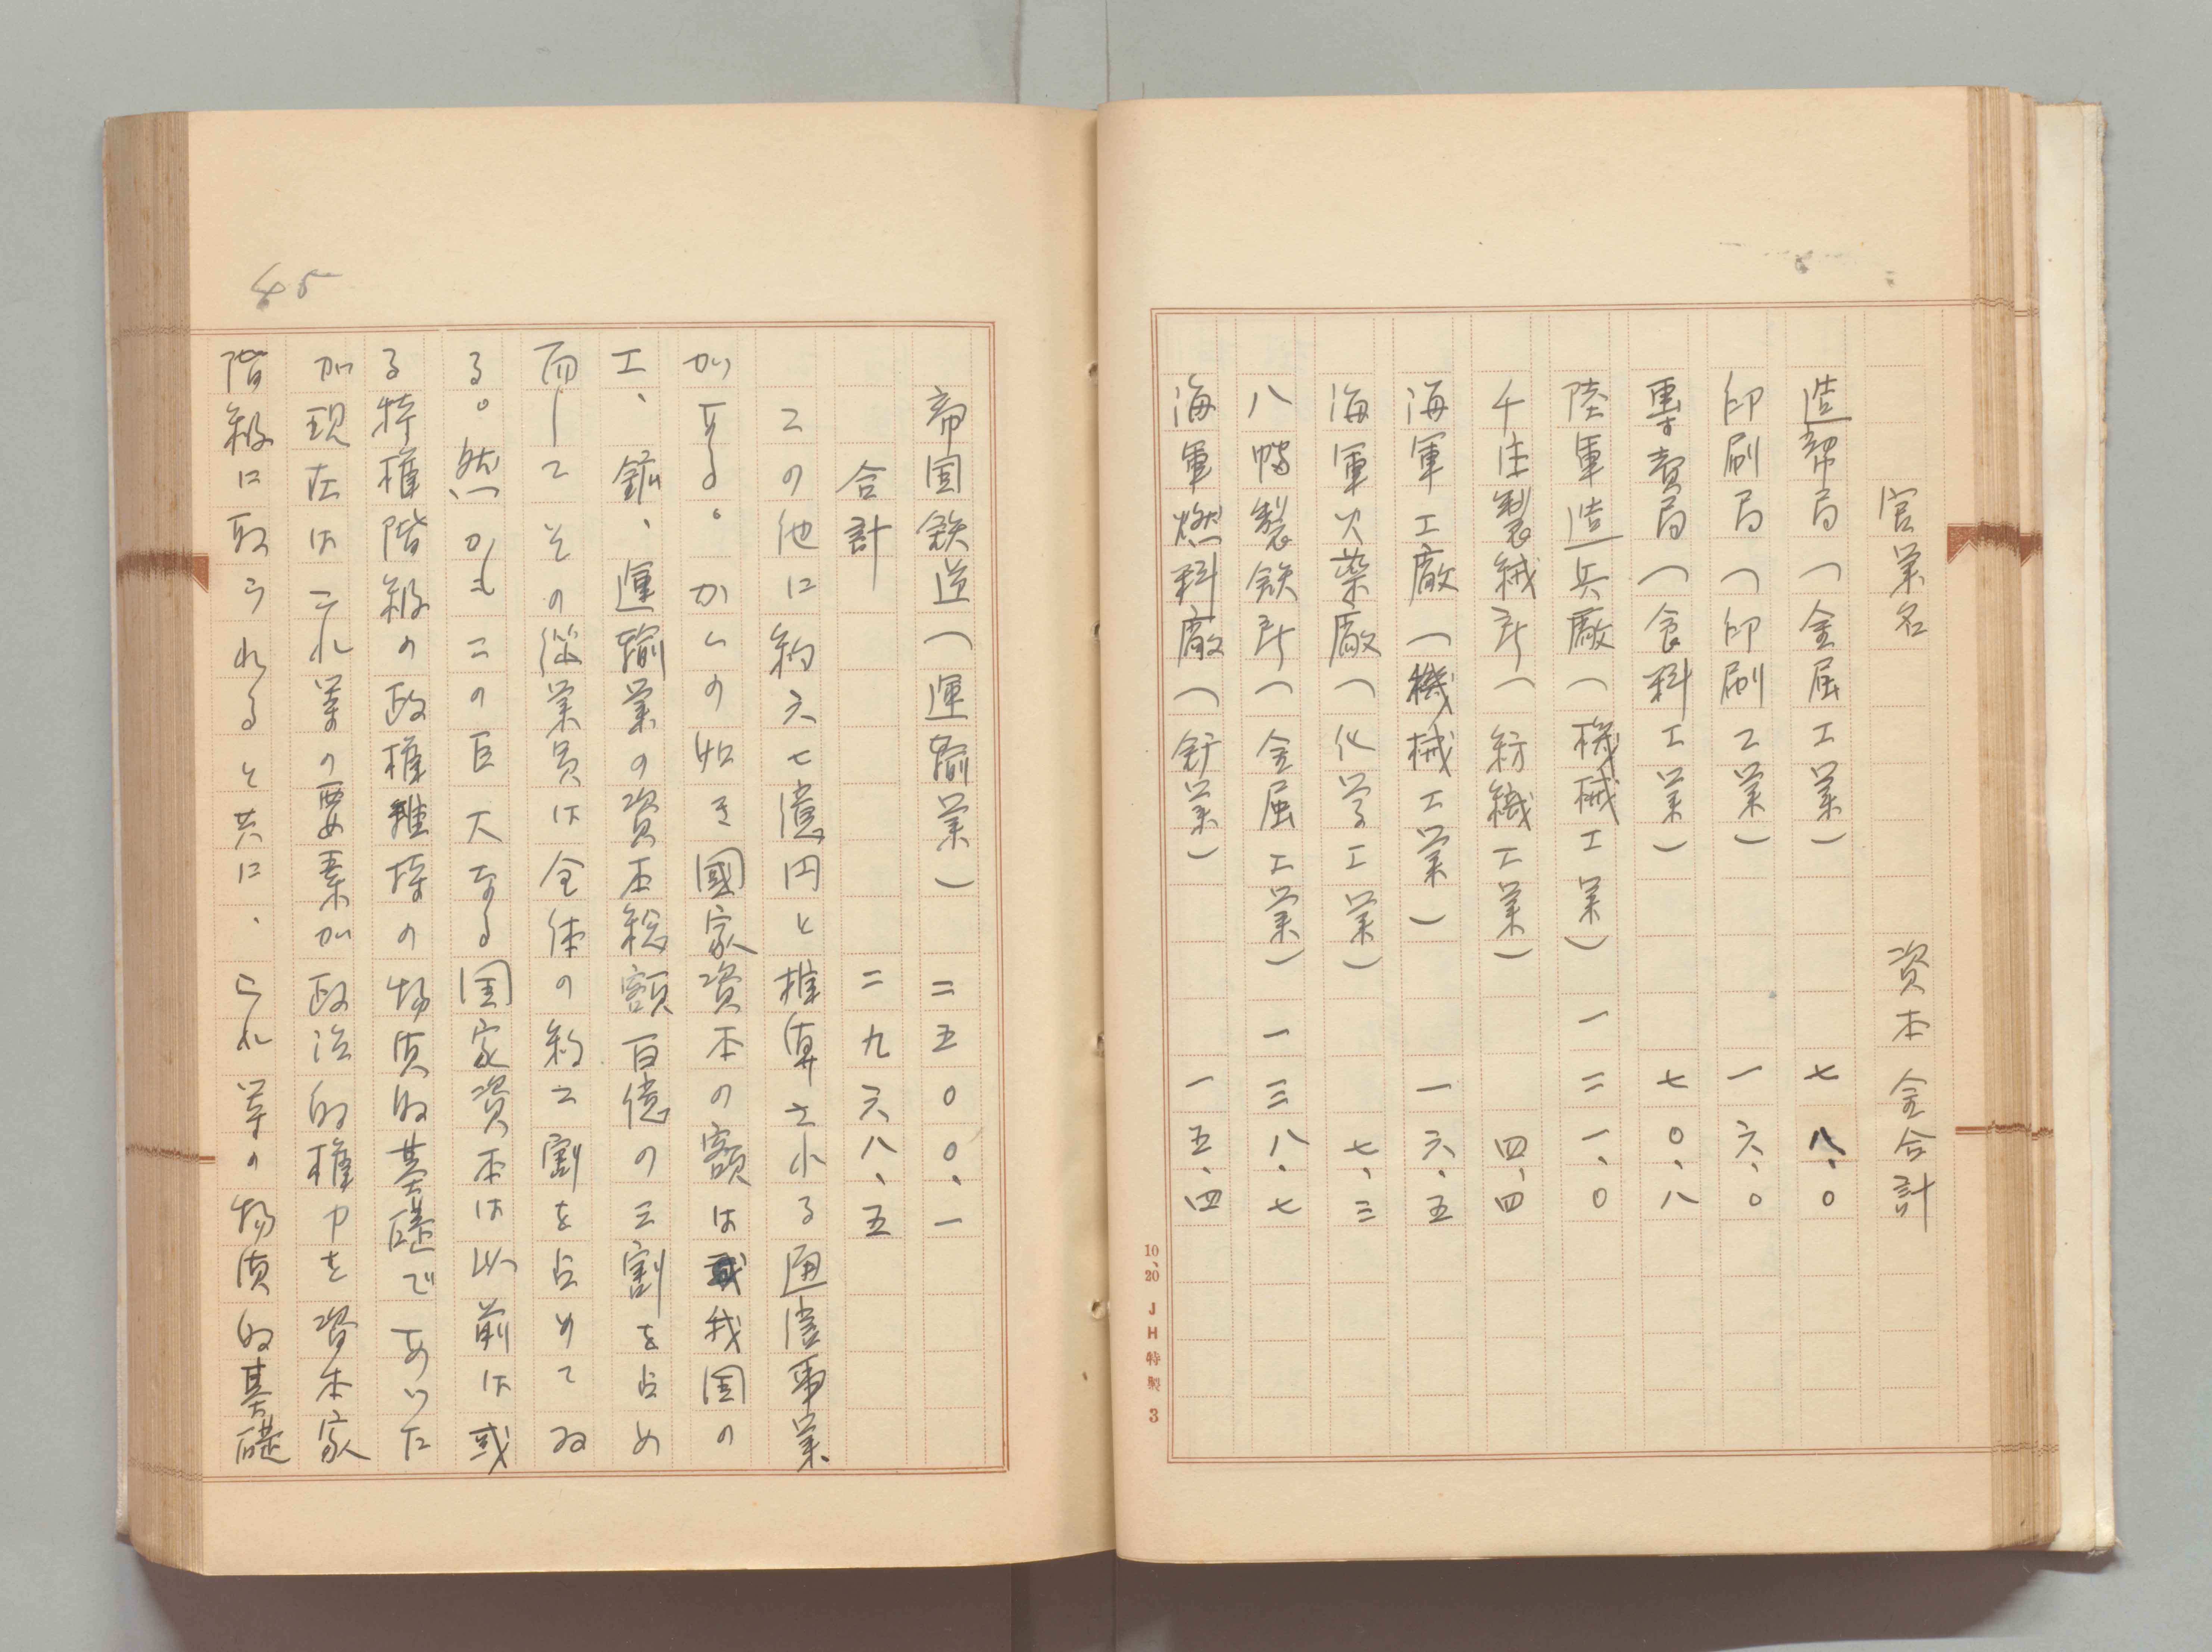 官業名 資本金合計
造幣局（金属工業） 七八、〇
印刷局（印刷工業） 一六、〇
専賣局（食料工業） 七〇、八
陸軍造兵廠（機械工業） 一二一、〇
千住製絨所（紡織工業） 四、四
海軍工廠（機械工業） 一六、五
海軍火薬廠（化学工業） 七、三
八幡製鉄所（金属工業） 一三八、七
海軍燃料廠（鉱業） 一五、四
10、20 JH特製 3
帝国鉄道（運輸業） 二五〇〇、一
合計 二九六八、五
この他に約六七億円と推算される通信事業
がある。かくの如き國家資本の額は我国の
工、鉱、運輸業の資本総額百億の三割を占め
而してその従業員は全体の約三割を占めてゐ
る。然かもこの巨大なる国家資本は以前は或
る特権階級の政権維持の物質的基礎であつた
が現在はこれ等の要素が政治的権力を資本家
階級に取うれると共に、これ等の物質的基礎
45